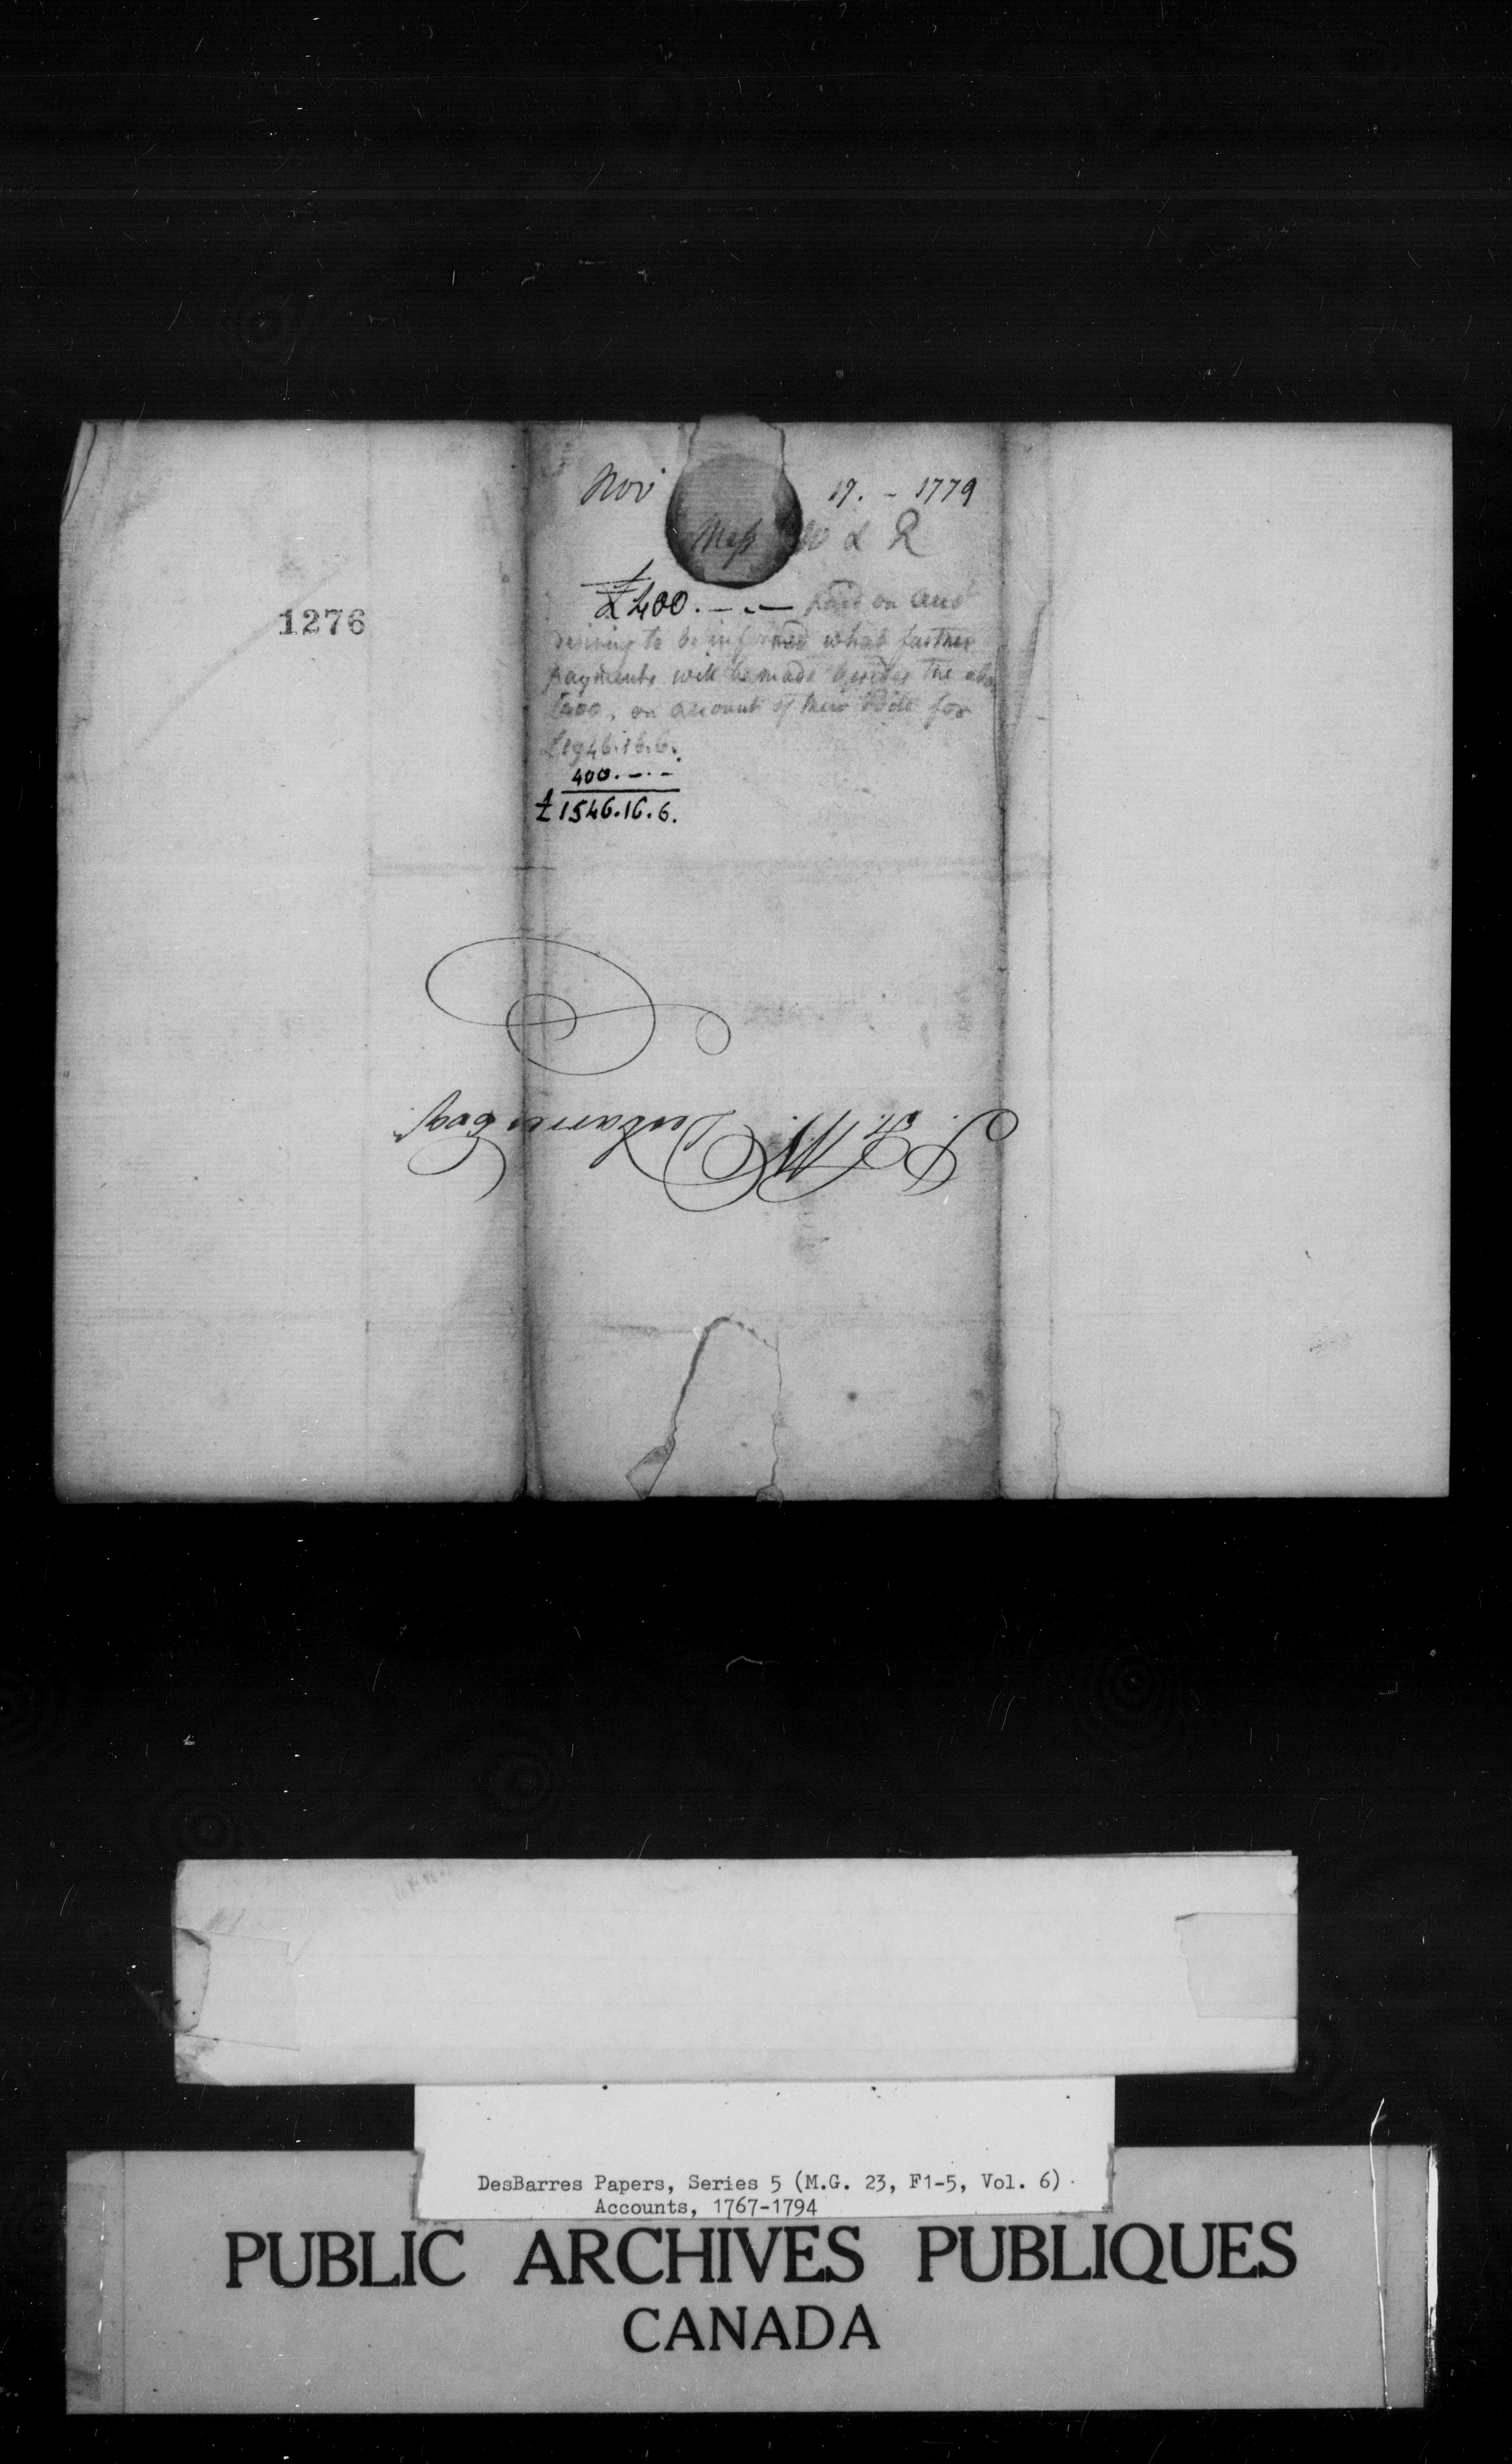 1276
Nov 17. - 1779
Mess W & R
£400. - . - paid on acct
desiring to be informed what further
payments will be made besides the abo
£400, on account of their Bill for
£1946.16.6.
400. - . -
£1546.16.6.
J. F. W. DesBarres Esqr
DesBarres Papers, Series 5 (M.G. 23, F1-5, Vol. 6)
Accounts, 1767-1794
PUBLIC ARCHIVES PUBLIQUES
CANADA